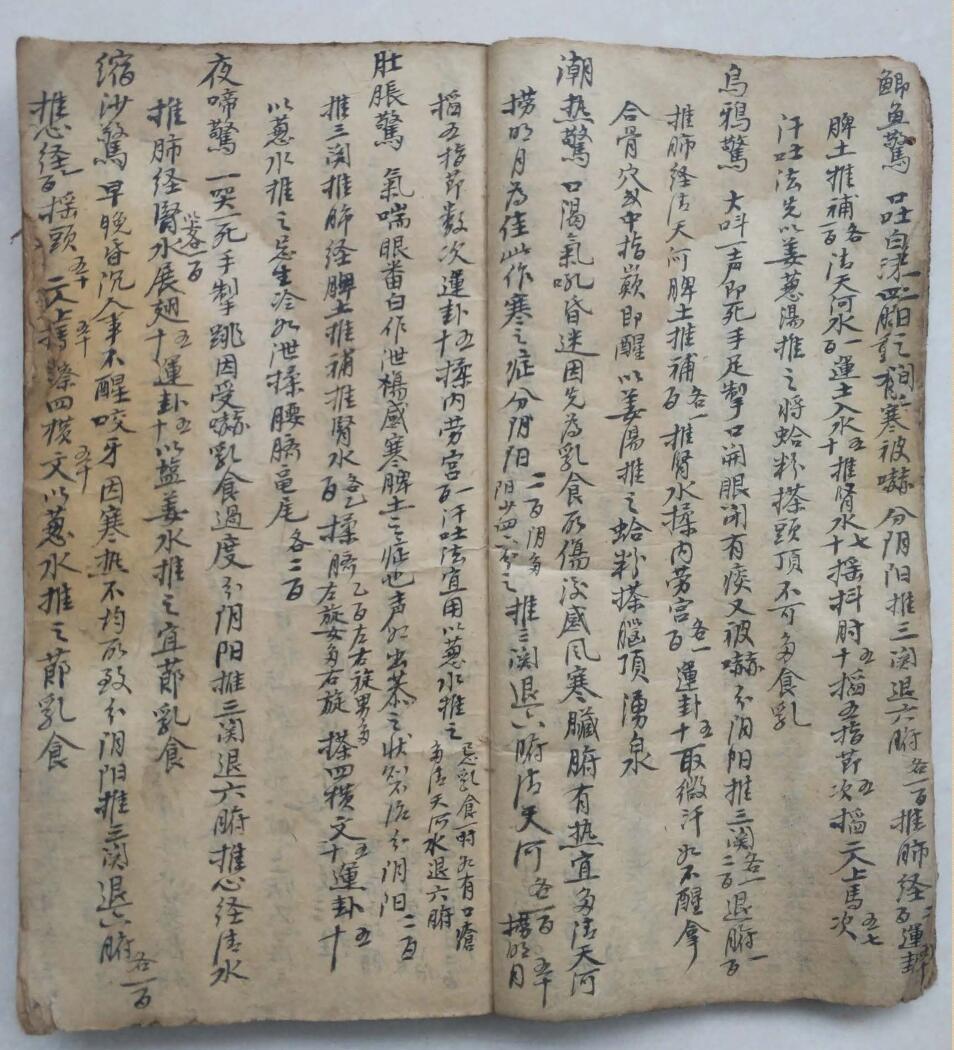 鯽魚驚 口吐白沫四肢有寒被嚇 分阴阳推三関退六腑各一百推肺経百運卦
脾土推補各一百清天河水一百運土入水五十推腎水七十摇抖肘五十搯五指節五次搯二人上馬次
汗吐法先以姜葱湯推之将蛤粉搽頭頂不可多食乳
烏鴉驚 大呌一声即死手足掣口開眼闭有痰又被嚇分阴阳推三関各一二百退腑一百
推肺経清天河脾土推補各一百推腎水揉内劳宫各一百運卦五十取微汗如不醒拿
合骨穴及中指巅即醒以姜湯推之蛤粉搽腦頂湧泉
潮热驚 口渴氣吼昏迷因先為乳食所傷後感风寒臟腑有热宜多清天河
捞明月為佳此作寒之症分阴阳二百阴多推三関退六腑清天河各一百捞明月五十
搯五指節数次運卦五十揉内劳宫一百汗吐法宜用以葱水推之忌乳食一時如有口瘡多清天河水退六腑
肚脹驚 氣喘眼番白作泄楊感寒脾土之症也声如出恭之状分阴阳二百
推三関推肺経脾土推補推腎水各乙百揉臍乙百左右旋男多左旋女多右旋 搽四横文五十運卦五十
以葱水推之忌生冷如泄揉腰臍龜尾各二百
夜啼驚 一哭一死手掣跳因受嚇乳食過度分阴阳推三関退六腑推心経清水
推肺経腎水以各一百展翅五十運卦五十以盐姜水推之宜節乳食
缩沙驚 早晚昏沉人事不醒咬牙因寒热不均所致分阴阳推三関退六腑各一百
推心経百摇頭五十二人上馬五十搽四横文五十以葱水推之節乳食